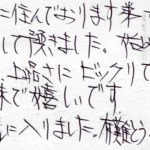 に住んでおります
して認きました。
上品さにビックリて
味で嬉しいです
に入りました。有難とう